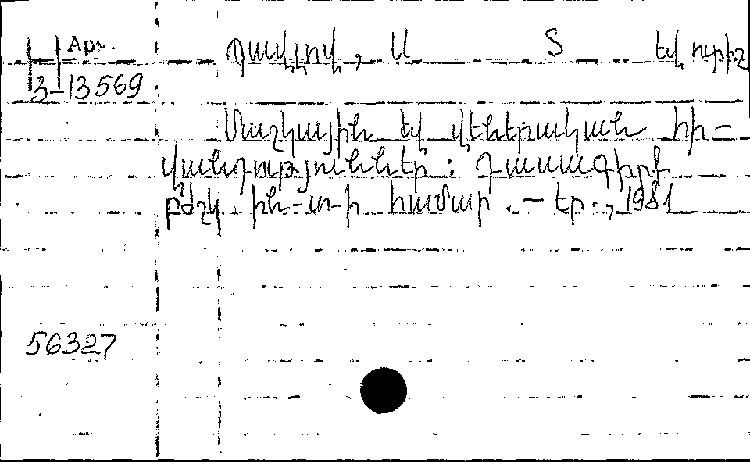 Арм.
3-13569
Պավլով, Ս Տ եվ ուրիշ
Մաշկային եվ վեներական հի-
վանդություններ: Դասագիրք
բժշկ. ին-տ-ի համար. – Եր., 1981
56327